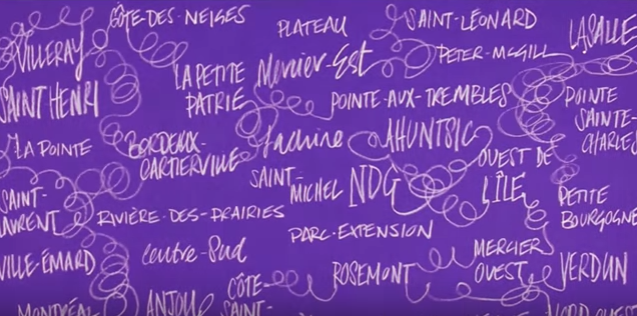 CÔTE-DES-NEIGES
PLATEAU
SAINT-LÉONARD
LASALLE
VILLERAY
LA PETITE
PATRIE
Mercier-Est
PETER-MCGILL
SAINT HENRI
POINTE-AUX-TREMBLES
POINTE
SAINTE-
CHARLES
LA POINTE
BORDEAUX-
CARTIERVILLE
Lachine
AHUNTSIC
OUEST DE
L'ÎLE
SAINT-
MICHEL
NDG
PETITE
BOURGOGNE
SAINT-
LAURENT
RIVIÈRE-DES-PRAIRIES
PARC-EXTENSION
VILLE-ÉMARD
Centre-Sud
ROSEMONT
MERCIER
OUEST
VERDUN
MONTRÉAL
ANJOU
CÔTE-
SAINT-